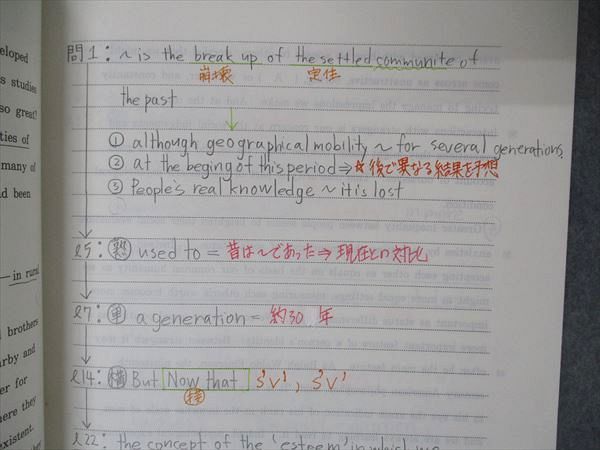 eloped
s studies
so great?
ties of
many of
d been
— in rural
brothers
rby and
er for
here they
existent.
other by
問1: ~ is the break up of the settled communite of
崩壊 定住
the past
① although geographical mobility ~ for several generations.
② at the beging of this period ⇒ ☆後で異なる結果を予想
③ People's real knowledge ~ it is lost
l5: 熟 used to = 昔は~であった ⇒ 現在との対比
l7: 単 a generation = 約30年
l14: 構 But Now that S'V', S'V'
接
l22: the concept of the 'esteem' in which we